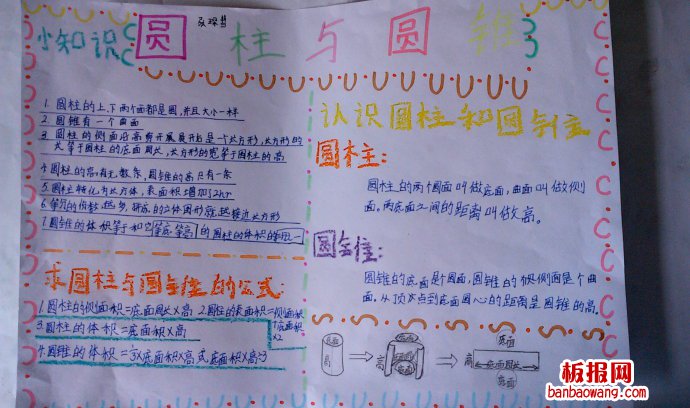 小知识
圆柱与圆锥
1. 圆柱的上、下两个面都是圆,并且大小一样
2. 圆锥有一个曲面
3. 圆柱的侧面沿高剪开展
是一个长方形,长方形的
长等于圆柱的底面周长,长方形的宽等于圆柱的高
4. 圆柱的高有无数条,圆锥的高只有一条
5. 圆柱转化为长方体,表面积增加了2hr
6. 等分的份数越多,拼成的立体图形就越接近长方形
7. 圆锥的体积等于和它等底等高的圆柱的体积的
求圆柱与圆锥的公式:
1. 圆柱的侧面积=底面周长×高
2. 圆柱的表面积=侧面积
+底面积
×2
3. 圆柱的体积=底面积×高
4. 圆锥的体积=
×底面积×高 或 底面积×高÷3
认识圆柱和圆锥
圆柱:
圆柱的两个圆面叫做底面,曲面叫做侧
面。两底面之间的距离叫做高。
圆锥:
圆锥的底面是个圆面,圆锥的侧面是个曲
面。从顶点到底面圆心的距离是圆锥的高。
底面
高
高
底面
底面
高
底面周长
底面
板报网
banbaowang.com